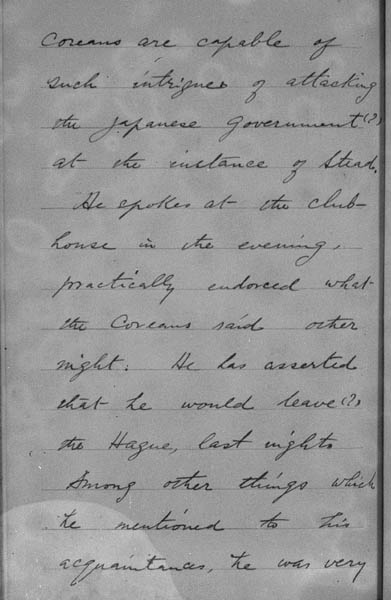 Coreans are capable of
such intrigues of attacking
the Japanese Government(?)
at the instance of Stead.
He spokes at the club-
house in the evening,
practically endorced what
the Coreans said other
night. He has asserted
that he would leave(?)
the Hague, last nights
Among other things which
he mentioned to his
acquaintances, he was very